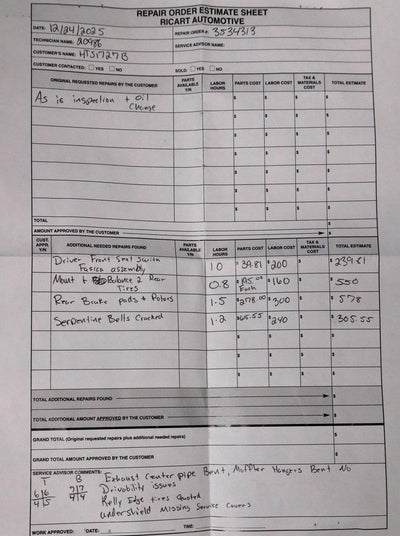 REPAIR ORDER ESTIMATE SHEET
RICART AUTOMOTIVE
DATE: 12/24/2025 REPAIR ORDER #: 3534313
TECHNICIAN NAME: 20986 SERVICE ADVISOR NAME:
CUSTOMER'S NAME: HTS1727B
CUSTOMER CONTACTED: YES NO SOLD: YES NO
ORIGINAL REQUESTED REPAIRS BY THE CUSTOMER PARTS AVAILABLE Y/N LABOR HOURS PARTS COST LABOR COST TAX & MATERIALS COST TOTAL ESTIMATE
As is inspection + oil $ $ $ $
change
$ $ $ $
$ $ $ $
$ $ $ $
$ $ $ $
$ $ $ $
TOTAL $ $ $ $
AMOUNT APPROVED BY THE CUSTOMER $
CUST. APPR. Y/N ADDITIONAL NEEDED REPAIRS FOUND PARTS AVAILABLE Y/N LABOR HOURS PARTS COST LABOR COST TAX & MATERIALS COST TOTAL ESTIMATE
Driver Front Seat Switch
Fascia assembly 1.0 $39.81 $200 $ $239.81
Mount + Balance 2 Rear
Tires 0.8 $195.00 Each $160 $ $550
Rear Brake pads + Rotors 1.5 $278.00 $300 $ $578
Serpentine Belts Cracked 1.2 $65.55 $240 $ $305.55
$ $ $ $
$ $ $ $
TOTAL ADDITIONAL REPAIRS FOUND $
TOTAL ADDITIONAL AMOUNT APPROVED BY THE CUSTOMER $
GRAND TOTAL (Original requested repairs plus additional needed repairs) $
GRAND TOTAL AMOUNT APPROVED BY THE CUSTOMER $
SERVICE ADVISOR COMMENTS: Exhaust center pipe Bent, Muffler Hangers Bent No
T B Drivability issues
6/6 7/7 Kelly Edge tires Quoted
4/5 4/4 undershield Missing Service Covers
WORK APPROVED: DATE: TIME: